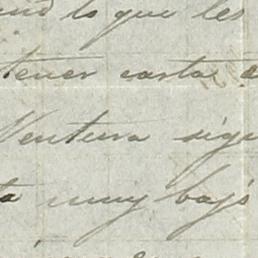 lo que les
tener carta
Ventura sigu
ta muy bajo